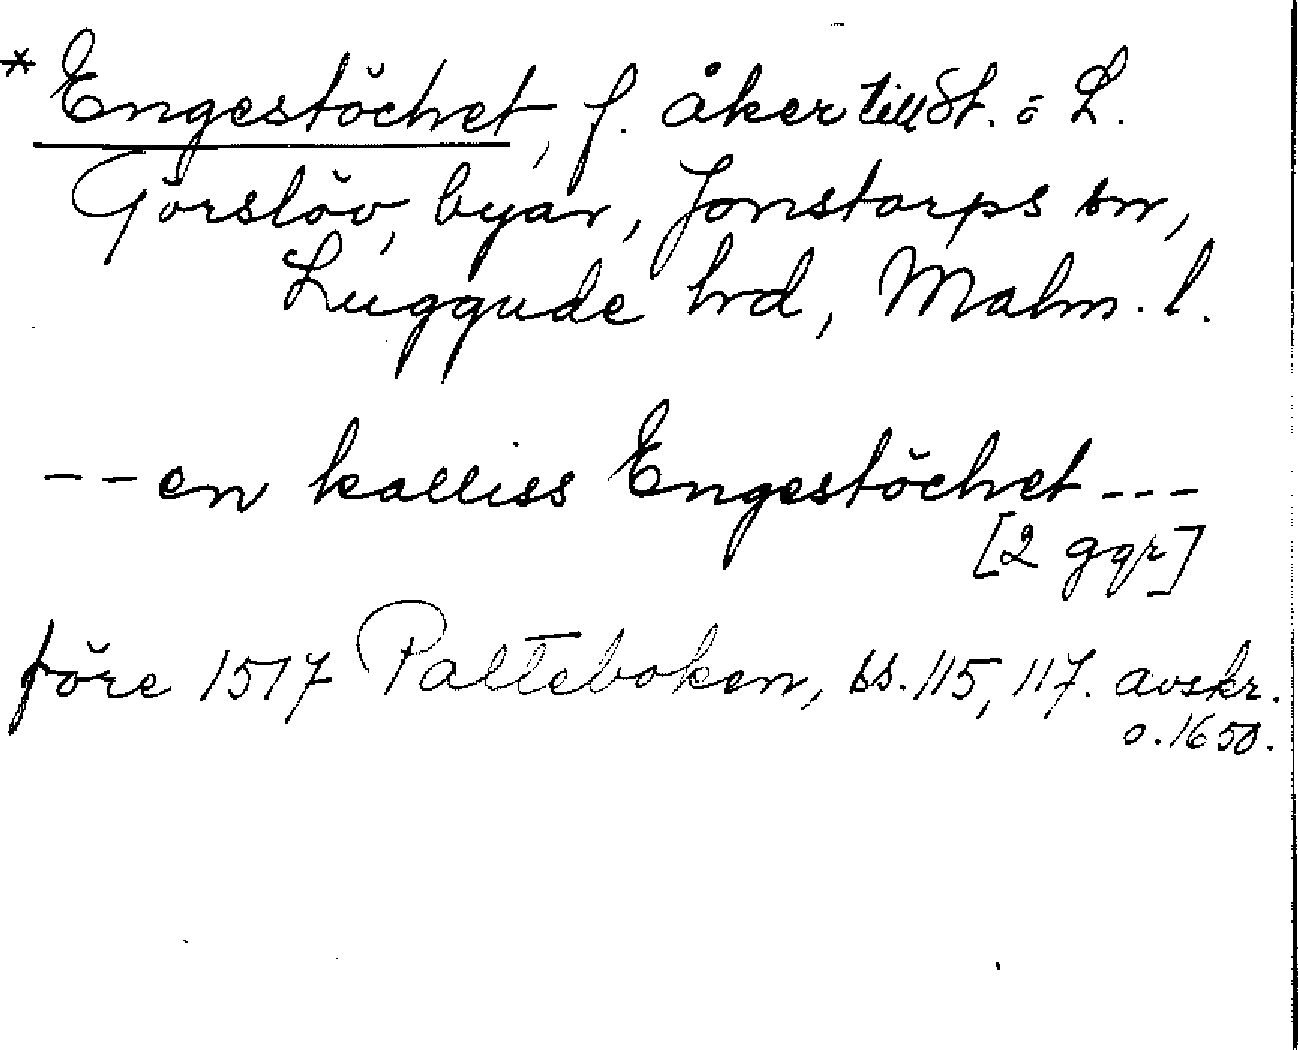 * Engestöchet, f. åker till St. o L.
Görslöv, byar, Jonstorps sn,
Luggude hrd, Malm. l.
-- en kalliss Engestöchet ---
[2 ggr]
före 1517 Palteboken, ss. 115, 117. avskr.
o. 1650.